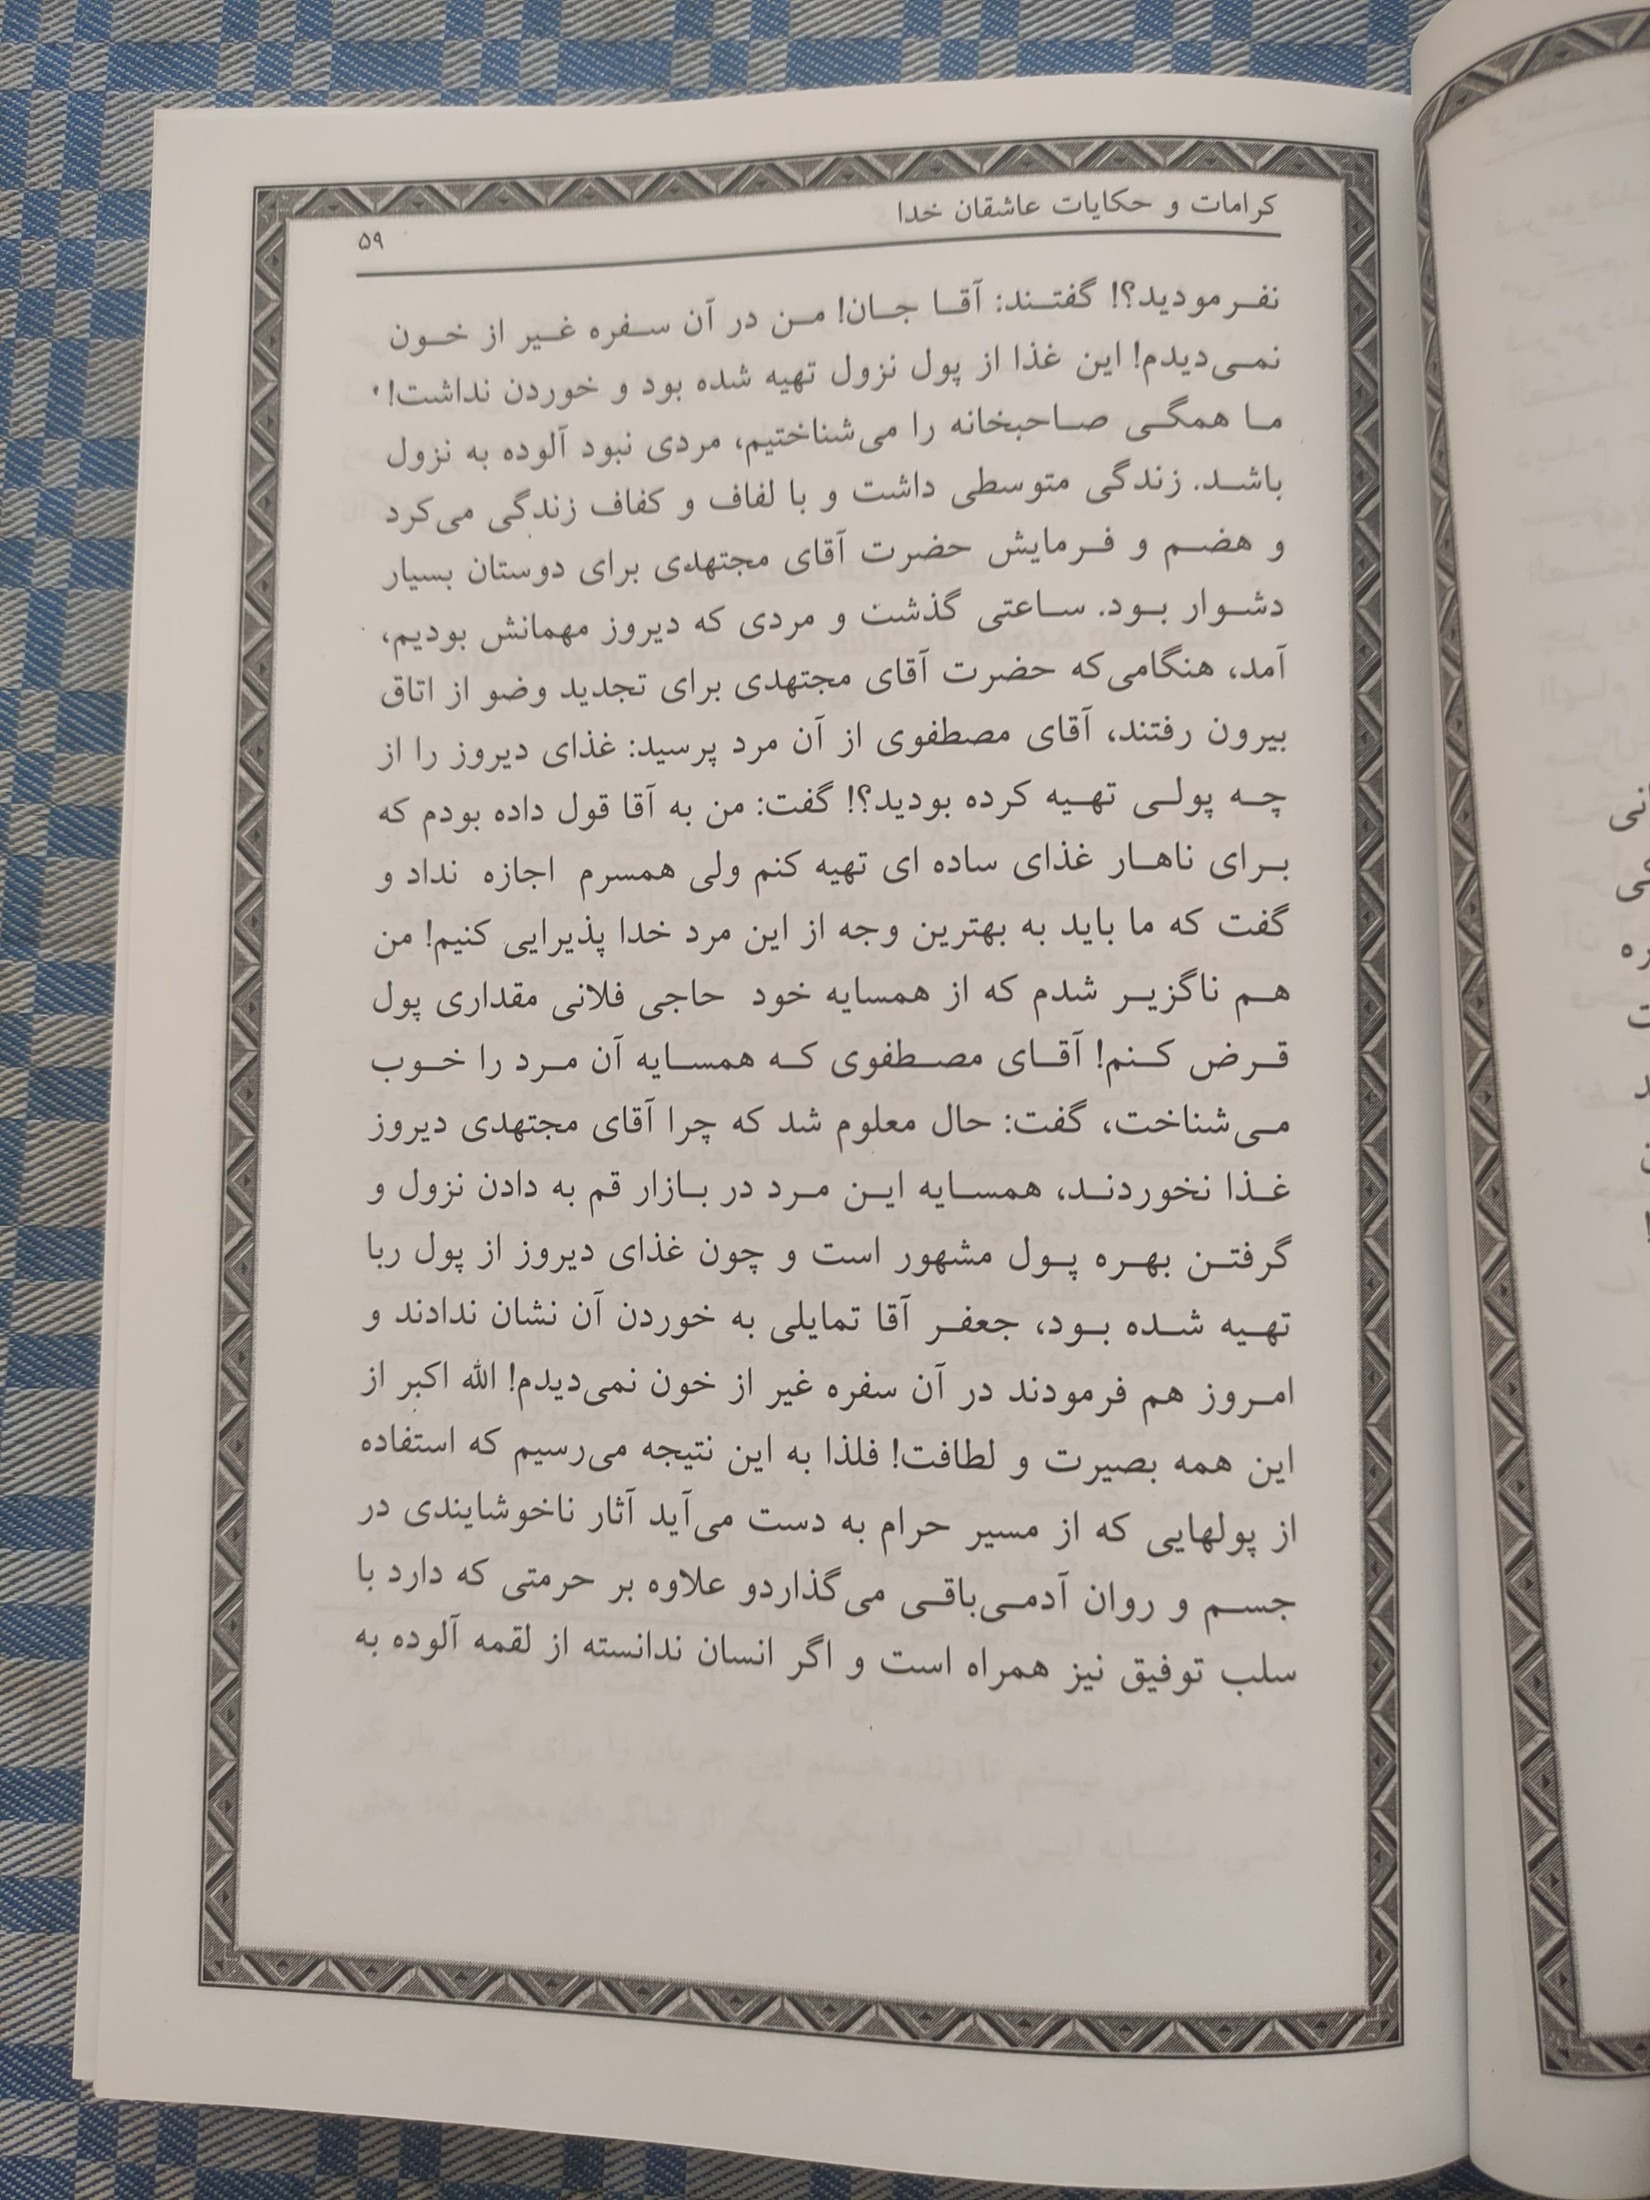 کرامات و حکایات عاشقان خدا
۵۹
نفرمودید؟! گفتند: آقا جان! من در آن سفره غیر از خون
نمی‌دیدم! این غذا از پول نزول تهیه شده بود و خوردن نداشت!
ما همگی صاحبخانه را می‌شناختیم، مردی نبود آلوده به نزول
باشد. زندگی متوسطی داشت و با لفاف و کفاف زندگی می‌کرد
و هضم و فرمایش حضرت آقای مجتهدی برای دوستان بسیار
دشوار بود. ساعتی گذشت و مردی که دیروز مهمانش بودیم،
آمد، هنگامی‌که حضرت آقای مجتهدی برای تجدید وضو از اتاق
بیرون رفتند، آقای مصطفوی از آن مرد پرسید: غذای دیروز را از
چه پولی تهیه کرده بودید؟! گفت: من به آقا قول داده بودم که
برای ناهار غذای ساده ای تهیه کنم ولی همسرم اجازه نداد و
گفت که ما باید به بهترین وجه از این مرد خدا پذیرایی کنیم! من
هم ناگزیر شدم که از همسایه خود حاجی فلانی مقداری پول
قرض کنم! آقای مصطفوی که همسایه آن مرد را خوب
می‌شناخت، گفت: حال معلوم شد که چرا آقای مجتهدی دیروز
غذا نخوردند، همسایه این مرد در بازار قم به دادن نزول و
گرفتن بهره پول مشهور است و چون غذای دیروز از پول ربا
تهیه شده بود، جعفر آقا تمایلی به خوردن آن نشان ندادند و
امروز هم فرمودند در آن سفره غیر از خون نمی‌دیدم! الله اکبر از
این همه بصیرت و لطافت! فلذا به این نتیجه می‌رسیم که استفاده
از پولهایی که از مسیر حرام به دست می‌آید آثار ناخوشایندی در
جسم و روان آدمی‌باقی می‌گذاردو علاوه بر حرمتی که دارد با
سلب توفیق نیز همراه است و اگر انسان ندانسته از لقمه آلوده به